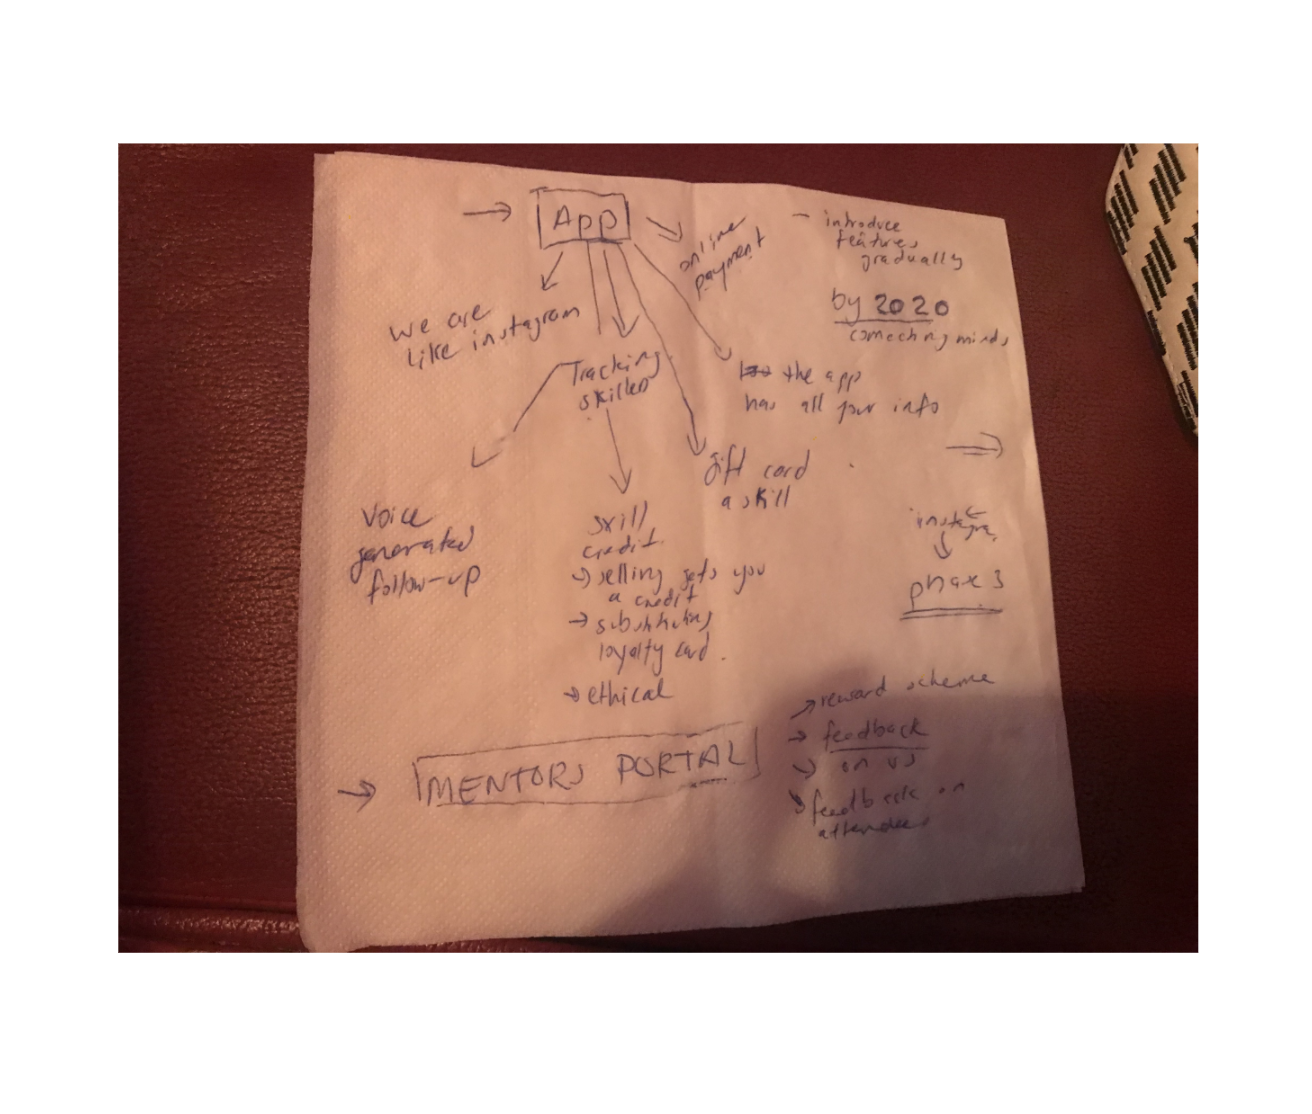 App
online
payment
- introduce
features
gradually
by 2020
minds
we are
like instagram
Tracking
skilled
the app
has all your info
gift card
a skill
voice
generated
follow-up
skill
credit
selling gets you
a credit
substituting
loyalty card.
ethical
instagra
phase 3
MENTORS PORTAL
reward scheme
feedback
on us
feedback on
attendees